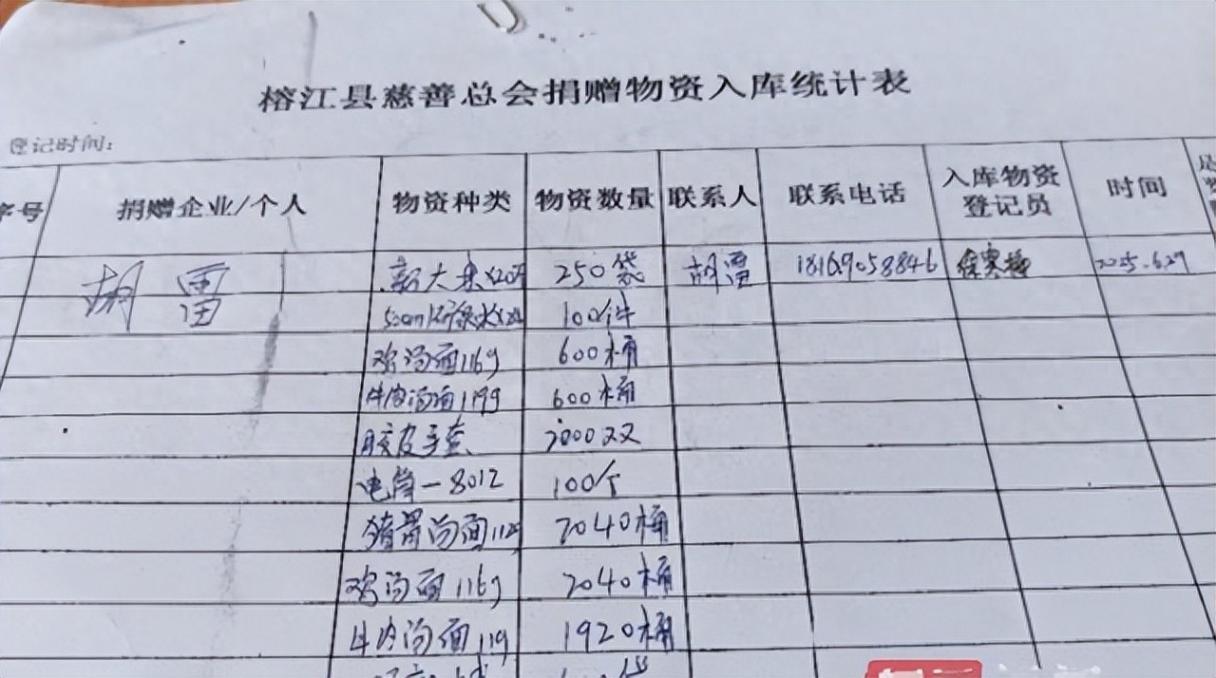 榕江县慈善总会捐赠物资入库统计表
登记时间：
序号 捐赠企业/个人 物资种类 物资数量 联系人 联系电话 入库物资登记员 时间 是
胡雷 新大米×20斤 250袋 胡雷 18169058846 2025.6.29
100件
鸡汤面116g 600桶
牛肉汤面119g 600桶
胶皮手套 2000双
电筒-8012 100个
猪骨汤面112g 2040桶
鸡汤面116g 2040桶
牛肉汤面119 1920桶